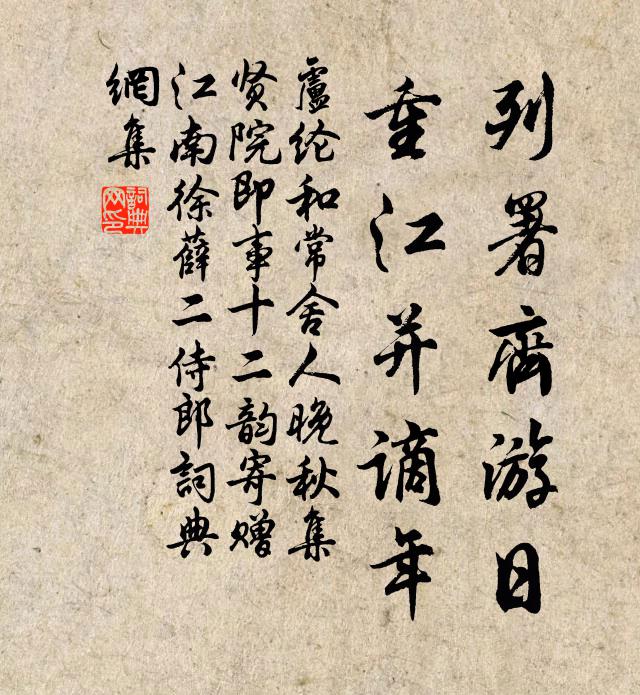 列署齊游日
重江并谪年
盧纶和常舍人晚秋集
贤院即事十二韵寄赠
江南徐薛二侍郎詞典
網集
詞典網印